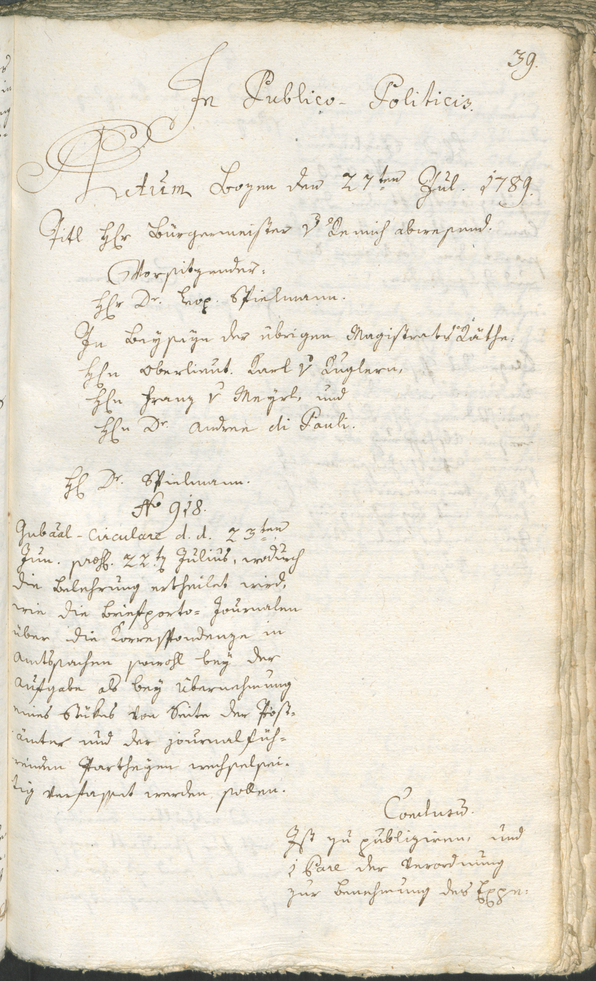 39.
In Publico-Politicis.
Actum Bozen den 27ten Jul. 1789.
Titl Hr Bürgermeister v Remich abwesend.
Vorsitzender:
Hr Dr. Leop. Spielmann.
In Beyseyn der übrigen Magistrats Räthe,
Hn Oberlieut. Karl v Kuglern,
Hn Franz v Mayrl, und
Hn Dr Andree di Pauli.
H Dr. Spielmann.
No 918.
Gubaal-Circulare d. d. 23ten
Jun. 22t Julius, wodurch
die Belehrung ertheilet wird,
wie die Briefporto-Journalen
über die Korrespondenze in
Amtssachen sowohl bey der
Aufgabe als bey Übernehmung
eines Stükes von Seite der Post-
ämter und der journalfüh-
renden Partheyen wechselsei-
tig verfasset werden sollen.
Conclusum.
Ist zu publiziren, und
1 Pare der Verordnung
zur Benehmung des Expe-